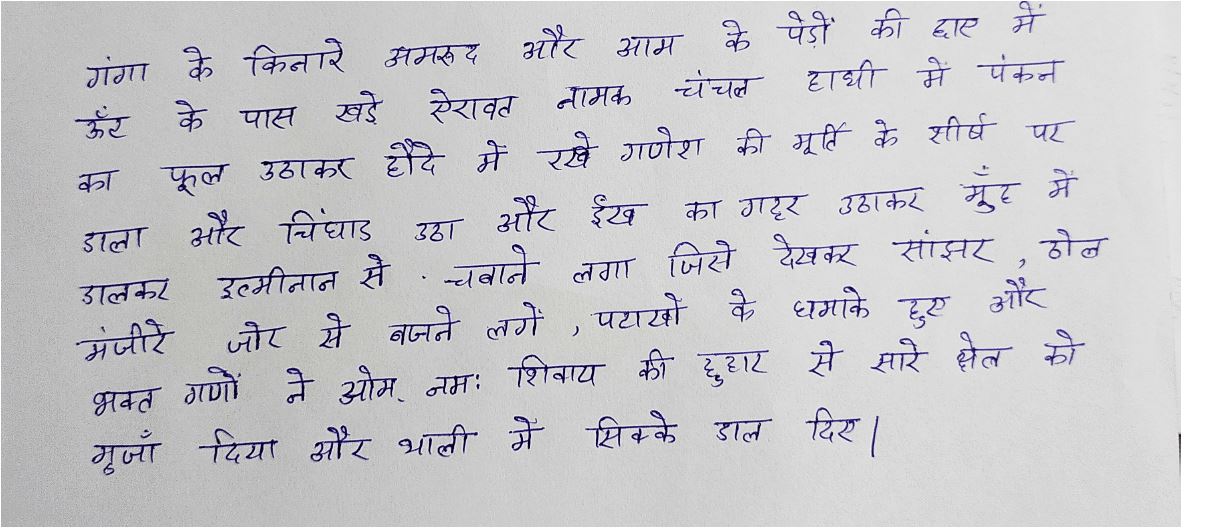 गंगा के किनारे अमरूद और आम के पेड़ों की छाए में
ऊँट के पास खड़े ऐरावत नामक चंचल हाथी में पंकन
का फूल उठाकर हौदे में रखे गणेश की मूर्ति के शीर्ष पर
डाला और चिंघाड उठा और ईख का गट्टर उठाकर मुँह में
डालकर इत्मीनान से चबाने लगा जिसे देखकर सांझर, ठोल
मंजीरे जोर से बजने लगें, पटाखों के धमाके हुए और
भक्त गणों ने ओम् नमः शिवाय की हुहार से सारे क्षेल को
गूजाँ दिया और थाली में सिक्के डाल दिए|